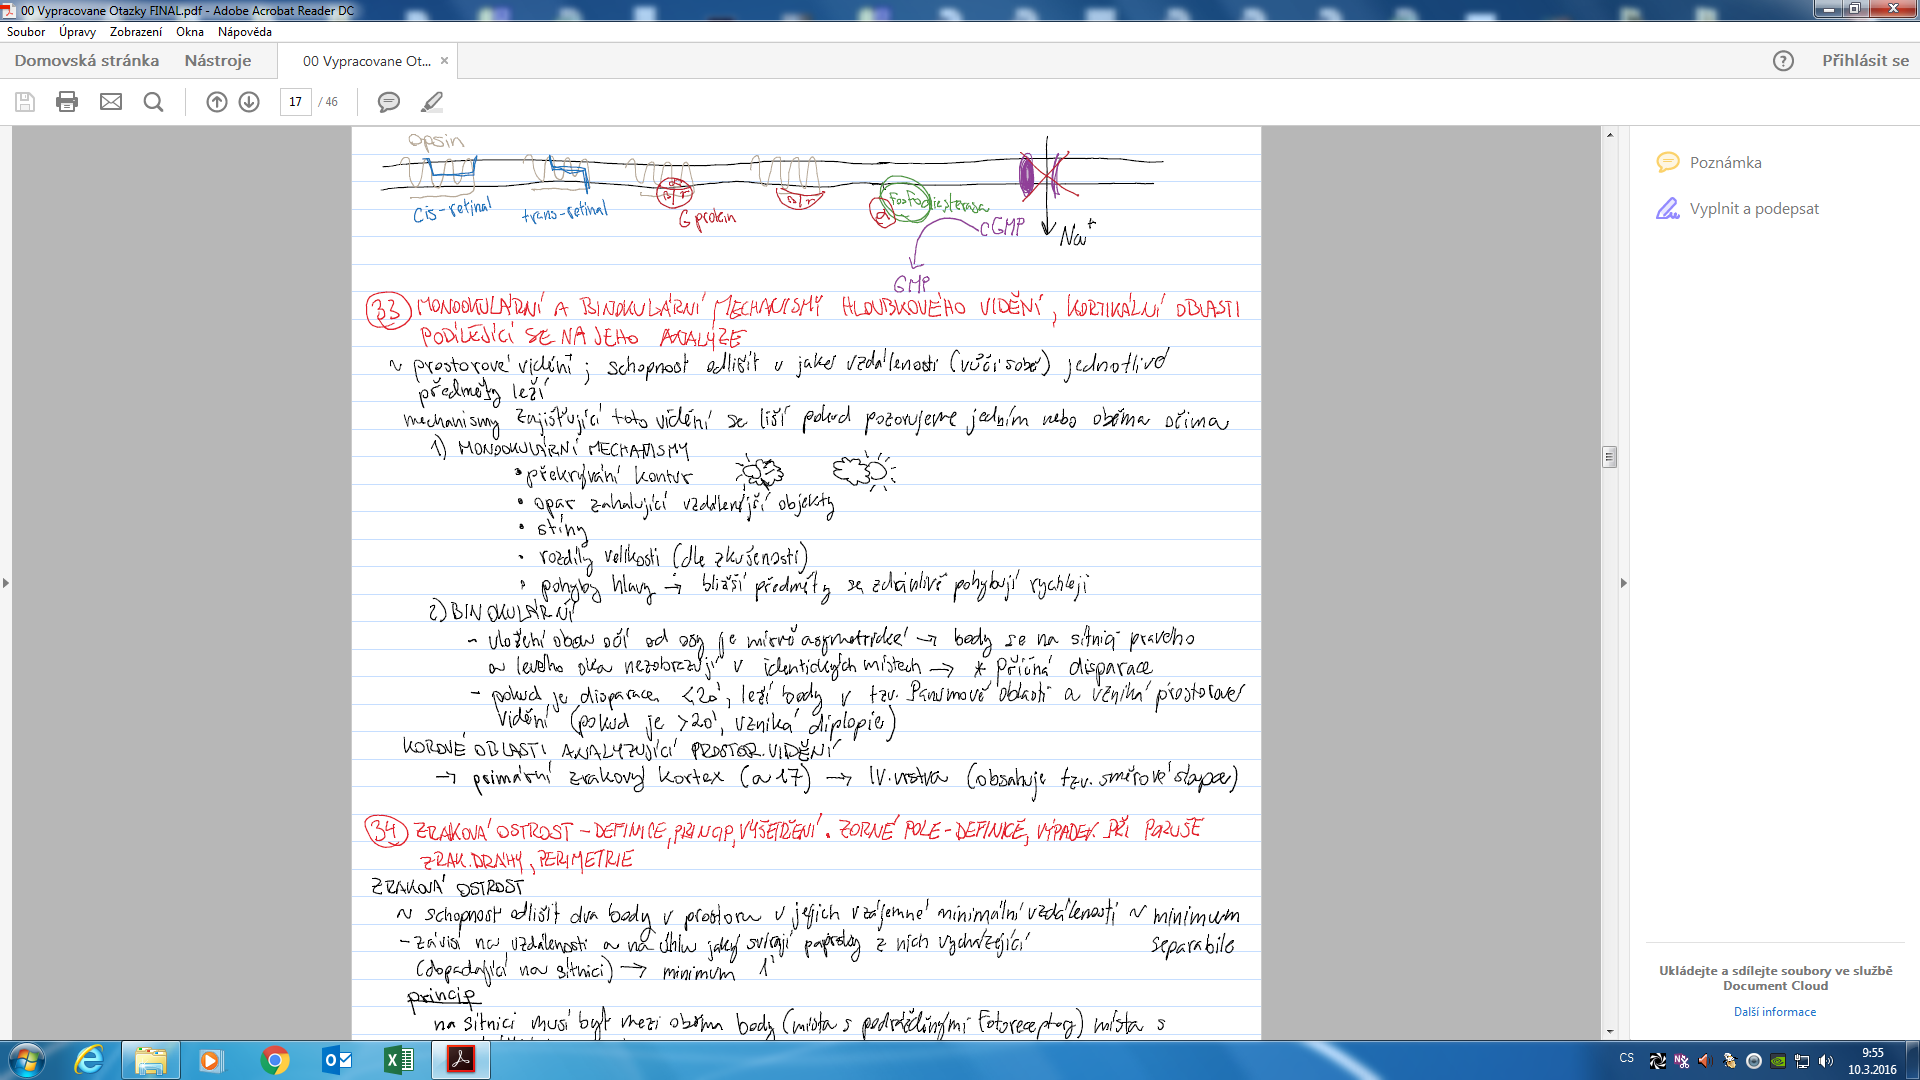 00 Vypracovane Otazky FINAL.pdf - Adobe Acrobat Reader DC
Soubor Úpravy Zobrazení Okna Nápověda
Domovská stránka Nástroje 00 Vypracovane Ot... × Přihlásit se
17 / 46
Opsin
cis-retinal trans-retinal G protein fosfodiesterasa
α β/γ β/γ α
cGMP Na+
GMP
33 MONOOKULÁRNÍ A BINOKULÁRNÍ MECHANISMY HLOUBKOVÉHO VIDĚNÍ, KORTIKÁLNÍ OBLASTI
PODÍLEJÍCÍ SE NA JEHO ANALÝZE
~ prostorové vidění; schopnost odlišit v jaké vzdálenosti (vůči sobě) jednotlivé
předměty leží
mechanismy zajišťující toto vidění se liší pokud pozorujeme jedním nebo oběma očima
1) MONOOKULÁRNÍ MECHANISMY
• překrývání kontur
• opar zahalující vzdálenější objekty
• stíny
• rozdíly velikosti (dle zkušeností)
• pohyby hlavy → bližší předměty se zdánlivě pohybují rychleji
2) BINOKULÁRNÍ
- uložení obou očí od osy je mírně asymetrické → body se na sítnici pravého
a levého oka nezobrazují v identických místech → * příčná disparace
- pokud je disparace <20', leží body v tzv. Panumově oblasti a vzniká prostorové
vidění (pokud je >20', vzniká diplopie)
KOROVÉ OBLASTI ANALYZUJÍCÍ PROSTOR. VIDĚNÍ
→ primární zrakový kortex (a 17) → IV. vrstva (obsahuje tzv. směrové sloupce)
34 ZRAKOVÁ OSTROST - DEFINICE, PRINCIP, VYŠETŘENÍ. ZORNÉ POLE - DEFINICE, VÝPADEK PŘI PORUŠE
ZRAK. DRÁHY, PERIMETRIE
ZRAKOVÁ OSTROST
~ schopnost odlišit dva body v prostoru v jejich vzájemné minimální vzdálenosti ~ minimum
separabile
- závisí na vzdálenosti a na úhlu jaký svírají paprsky z nich vycházející
(dopadající na sítnici) → minimum 1'
princip
na sítnici musí být mezi oběma body (místa s podrážděnými fotoreceptory) místa s
Poznámka
Vyplnit a podepsat
Ukládejte a sdílejte soubory ve službě
Document Cloud
Další informace
CS 9:55
10.3.2016